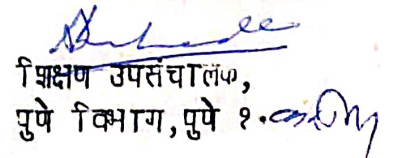 शिक्षण उपसंचालक,
पुणे विभाग, पुणे १.